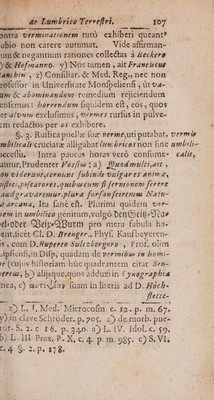 de Lumbrico Terrestri. 107
contra verminationem tutò exhiberi queant
dubio non carere autumat. Vide affirman-
tium & negantium rationes collectas à Beckero
& Hofmanno. y) Nos tamen, ait Franciscus
Ranchin, z) Consiliar. & Med. Reg., nec non
rofessor in Universitate Monspeliensi, it va-
um & abominandum remedium rejiciendum
ensemus: horrendum siquidem est, eos, quos
er alvum exclusimus, vermes rursus in pulve-
em redactos per os exhibere.
§. 3. Rustica puellæ suæ verme, uti putabat, vermis
umbilicali cruciatæ alligabat lumbricos non sine umbili-
successu. Intra paucas horas verò consume- calis,
bantur. Prudenter Vossius: a) Quod multi, ait,
non viderunt, cernunt subinde vulgares animæ,
rustici, piscatores, quibus cum si sermonem ferere
haud gravaremur, plura forsan scirem Natu-
æ arcana. Ita sanè est. Plurimi quidem ver-
em in umbilico genitum, vulgò den Geiß-Na-
bel-oder Beiß-Wurm pro mera fabula ha-
ent, sicèt Cl. D. Brenger., Phys. Kaufbeyeren-
s, cum D. Ruperto Sulzbergero, Prof. olim
ipsiensi, in Disp. quadam de vermibus in homi-
ne (cujus historiam huc quadrantem citat Sen-
nertus, b) aliisque, quos adduxi in Cynographia
mea, c) suam in literis ad D. Höch-
stette-
z) L. I. Med. Microcosm. c. 12. p. m. 67.
y) in clave Schröder. p. 705. z) de morb. pue-
ror. S. 2. c 16. p. 340. a) L. IV. Idol. c. 59.
b) L. III Prax. P. X. c. 4. p. m. 985. c) S. VI.
c. 4 §. 2. p. 178.